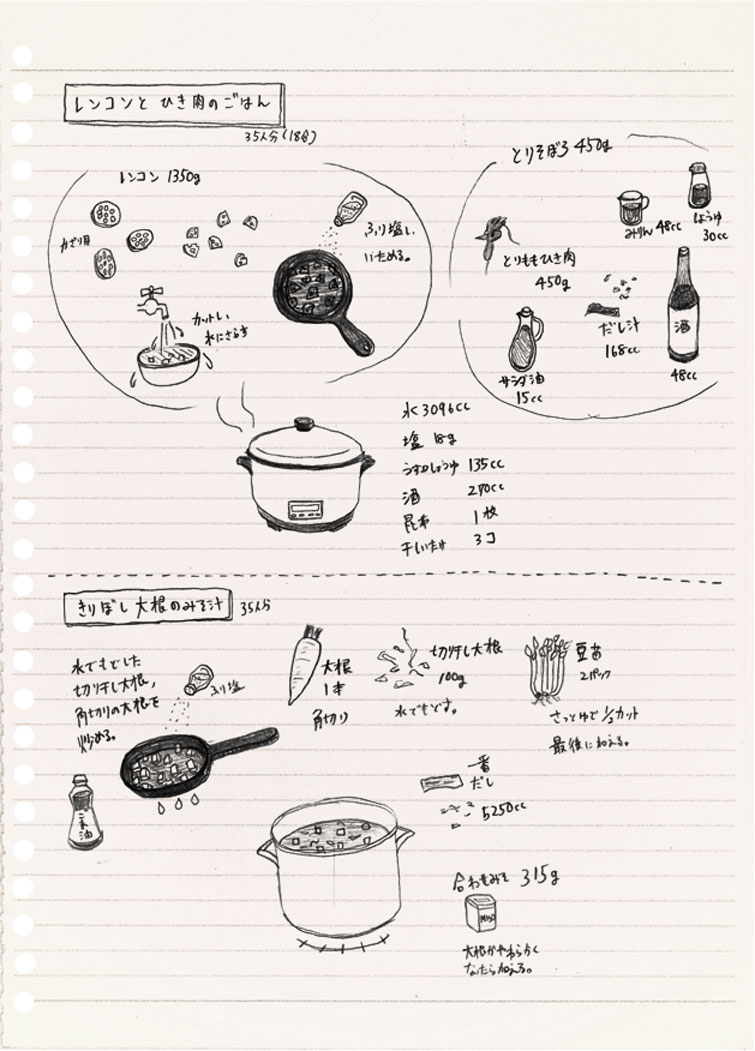 レンコンと ひき肉のごはん
35人分(18合)
レンコン 1350g
かざり用
ふり塩し、
いためる。
カットし、
水にさらす
とりそぼろ 450g
みりん 48cc
しょうゆ
30cc
とりももひき肉
450g
だし汁
168cc
酒
48cc
サラダ油
15cc
水 3096cc
塩 18g
うす口しょうゆ 135cc
酒 270cc
昆布 1枚
干しいたけ 3コ
きりぼし大根のみそ汁
35人分
水でもどした
切り干し大根,
角切りの大根を
炒める。
ふり塩
ごま油
大根
1本
角切り
切り干し大根
100g
水でもどす。
豆苗
2パック
さっとゆで 1/2カット
最後に加える。
一番
だし
5250cc
合わせみそ 315g
MISO
大根がやわらかく
なったら加える。